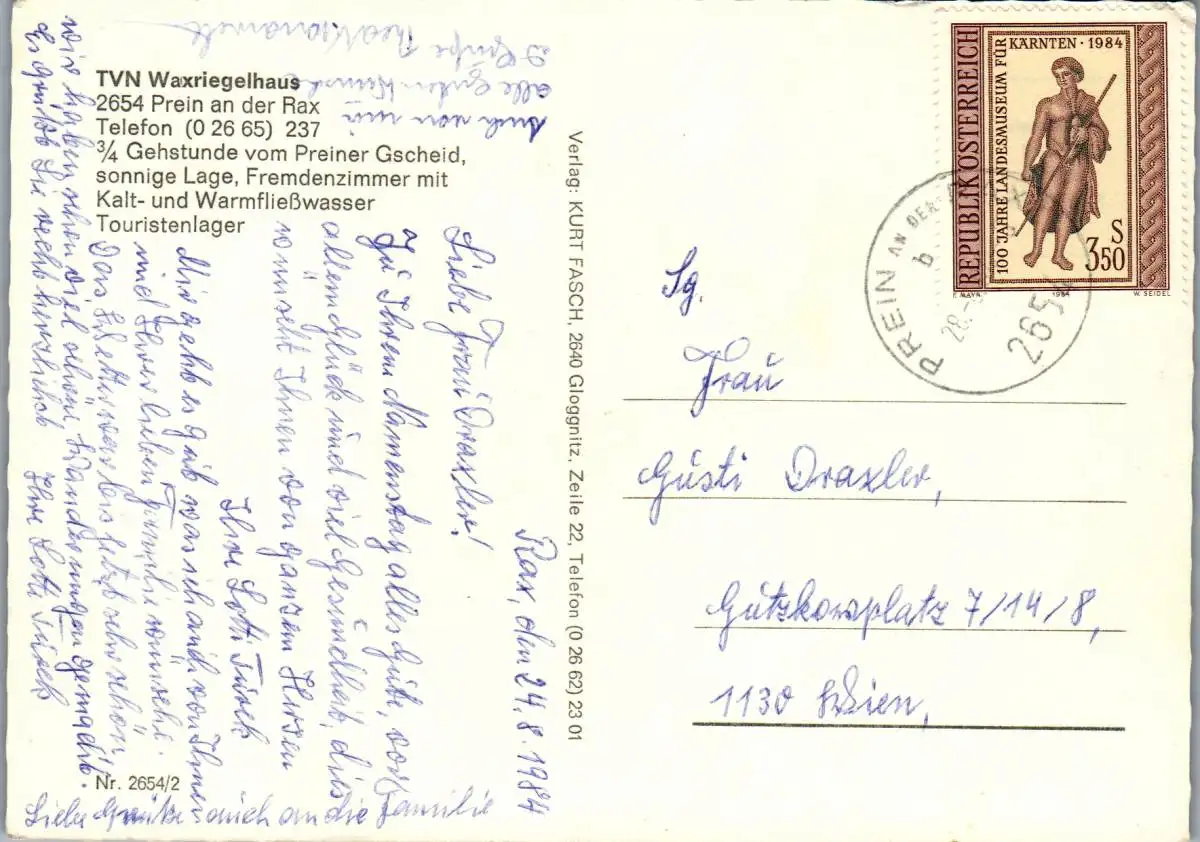 TVN Waxriegelhaus
2654 Prein an der Rax
Telefon (0 26 65) 237
¾ Gehstunde vom Preiner Gscheid,
sonnige Lage, Fremdenzimmer mit
Kalt- und Warmfließwasser
Touristenlager
Rax, den 24.8.1984
Liebe Frau Draxler!
Zu Ihrem Namenstag alles Gute, vor
allem Glück und viel Gesundheit, dies
wünscht Ihnen von ganzem Herzen
Ihre Lotte Türck
Mir geht es gut was ich auch von Ihnen
und Ihrer lieben Familie wünsche.
Das Wetter war bis jetzt sehr schön,
wir haben schon viel schöne Wanderungen gemacht.
Es grüßt Sie recht herzlich Ihre Lotte Türck
Liebe Grüße auch an die Familie
Auch von mir
alle guten Wünsche
& Grüße
Nr. 2654/2
Verlag: KURT FASCH, 2640 Gloggnitz, Zeile 22, Telefon (0 26 62) 23 01
REPUBLIK ÖSTERREICH
100 JAHRE LANDESMUSEUM FÜR
KÄRNTEN · 1984
S
3.50
F. MAYR
1984
W. SEIDEL
PREIN AN DER
b
28.
2654
Sg.
Frau
Gusti Draxler,
Gutzkowplatz 7/14/8,
1130 Wien,